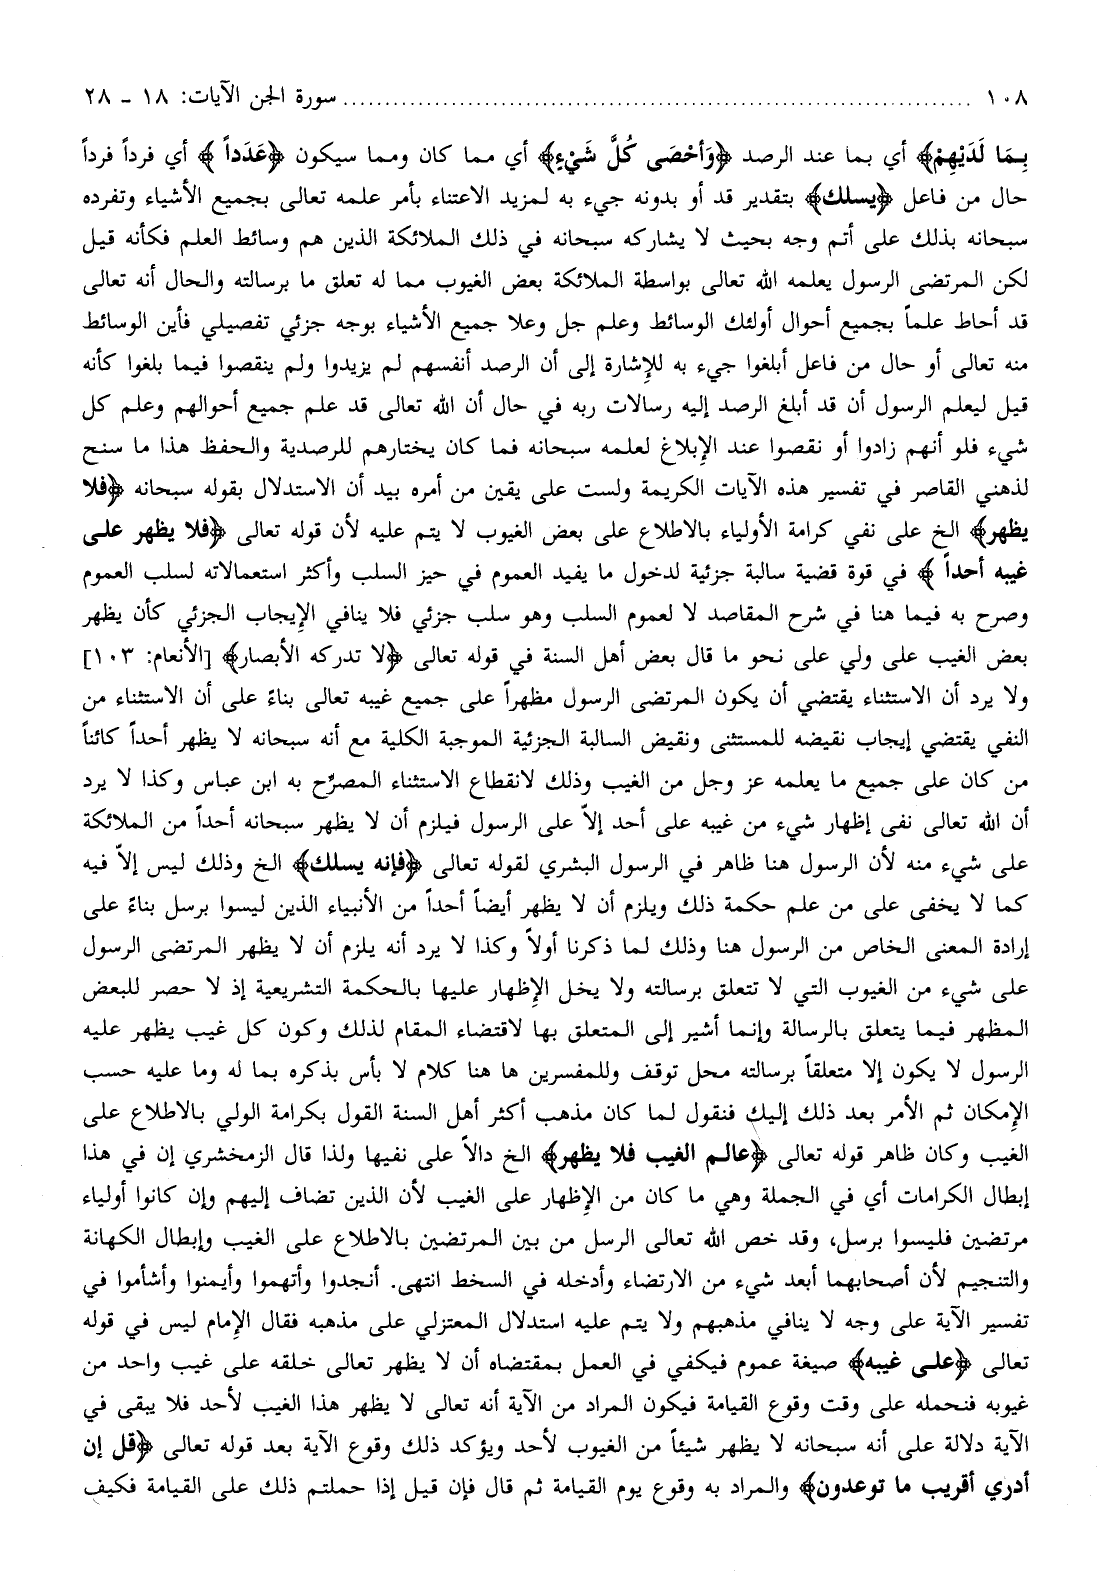 ١٠٨ ........................................................................... سورة الجن الآيات: ١٨ - ٢٨
بِمَا لَدَيْهِمْ﴾ أي بما عند الرصد ﴿وَأَحْصَى كُلَّ شَيْءٍ﴾ أي مما كان ومما سيكون ﴿عَدَداً﴾ أي فرداً فرداً
حال من فاعل ﴿يسلك﴾ بتقدير قد أو بدونه جيء به لمزيد الاعتناء بأمر علمه تعالى بجميع الأشياء وتفرده
سبحانه بذلك على أتم وجه بحيث لا يشاركه سبحانه في ذلك الملائكة الذين هم وسائط العلم فكأنه قيل
لكن المرتضى الرسول يعلمه الله تعالى بواسطة الملائكة بعض الغيوب مما له تعلق ما برسالته والحال أنه تعالى
قد أحاط علماً بجميع أحوال أولئك الوسائط وعلم جل وعلا جميع الأشياء بوجه جزئي تفصيلي فأين الوسائط
منه تعالى أو حال من فاعل أبلغوا جيء به للإشارة إلى أن الرصد أنفسهم لم يزيدوا ولم ينقصوا فيما بلغوا كأنه
قيل ليعلم الرسول أن قد أبلغ الرصد إليه رسالات ربه في حال أن الله تعالى قد علم جميع أحوالهم وعلم كل
شيء فلو أنهم زادوا أو نقصوا عند الإبلاغ لعلمه سبحانه فما كان يختارهم للرصدية والحفظ هذا ما سنح
لذهني القاصر في تفسير هذه الآيات الكريمة ولست على يقين من أمره بيد أن الاستدلال بقوله سبحانه ﴿فلا
يظهر﴾ الخ على نفي كرامة الأولياء بالاطلاع على بعض الغيوب لا يتم عليه لأن قوله تعالى ﴿فلا يظهر على
غيبه أحداً﴾ في قوة قضية سالبة جزئية لدخول ما يفيد العموم في حيز السلب وأكثر استعمالاته لسلب العموم
وصرح به فيما هنا في شرح المقاصد لا لعموم السلب وهو سلب جزئي فلا ينافي الإيجاب الجزئي كأن يظهر
بعض الغيب على ولي على نحو ما قال بعض أهل السنة في قوله تعالى ﴿لا تدركه الأبصار﴾ [الأنعام: ١٠٣]
ولا يرد أن الاستثناء يقتضي أن يكون المرتضى الرسول مظهراً على جميع غيبه تعالى بناءً على أن الاستثناء من
النفي يقتضي إيجاب نقيضه للمستثنى ونقيض السالبة الجزئية الموجبة الكلية مع أنه سبحانه لا يظهر أحداً كائناً
من كان على جميع ما يعلمه عز وجل من الغيب وذلك لانقطاع الاستثناء المصرّح به ابن عباس وكذا لا يرد
أن الله تعالى نفى إظهار شيء من غيبه على أحد إلاّ على الرسول فيلزم أن لا يظهر سبحانه أحداً من الملائكة
على شيء منه لأن الرسول هنا ظاهر في الرسول البشري لقوله تعالى ﴿فإنه يسلك﴾ الخ وذلك ليس إلاّ فيه
كما لا يخفى على من علم حكمة ذلك ويلزم أن لا يظهر أيضاً أحداً من الأنبياء الذين ليسوا برسل بناءً على
إرادة المعنى الخاص من الرسول هنا وذلك لما ذكرنا أولاً وكذا لا يرد أنه يلزم أن لا يظهر المرتضى الرسول
على شيء من الغيوب التي لا تتعلق برسالته ولا يخل الإظهار عليها بالحكمة التشريعية إذ لا حصر للبعض
المظهر فيما يتعلق بالرسالة وإنما أشير إلى المتعلق بها لاقتضاء المقام لذلك وكون كل غيب يظهر عليه
الرسول لا يكون إلا متعلقاً برسالته محل توقف وللمفسرين ها هنا كلام لا بأس بذكره بما له وما عليه حسب
الإمكان ثم الأمر بعد ذلك إليك فنقول لما كان مذهب أكثر أهل السنة القول بكرامة الولي بالاطلاع على
الغيب وكان ظاهر قوله تعالى ﴿عالم الغيب فلا يظهر﴾ الخ دالاً على نفيها ولذا قال الزمخشري إن في هذا
إبطال الكرامات أي في الجملة وهي ما كان من الإظهار على الغيب لأن الذين تضاف إليهم وإن كانوا أولياء
مرتضين فليسوا برسل، وقد خص الله تعالى الرسل من بين المرتضين بالاطلاع على الغيب وإبطال الكهانة
والتنجيم لأن أصحابهما أبعد شيء من الارتضاء وأدخله في السخط انتهى. أنجدوا وأتهموا وأيمنوا وأشأموا في
تفسير الآية على وجه لا ينافي مذهبهم ولا يتم عليه استدلال المعتزلي على مذهبه فقال الإمام ليس في قوله
تعالى ﴿على غيبه﴾ صيغة عموم فيكفي في العمل بمقتضاه أن لا يظهر تعالى خلقه على غيب واحد من
غيوبه فنحمله على وقت وقوع القيامة فيكون المراد من الآية أنه تعالى لا يظهر هذا الغيب لأحد فلا يبقى في
الآية دلالة على أنه سبحانه لا يظهر شيئاً من الغيوب لأحد ويؤكد ذلك وقوع الآية بعد قوله تعالى ﴿قل إن
أدري أقريب ما توعدون﴾ والمراد به وقوع يوم القيامة ثم قال فإن قيل إذا حملتم ذلك على القيامة فكيف